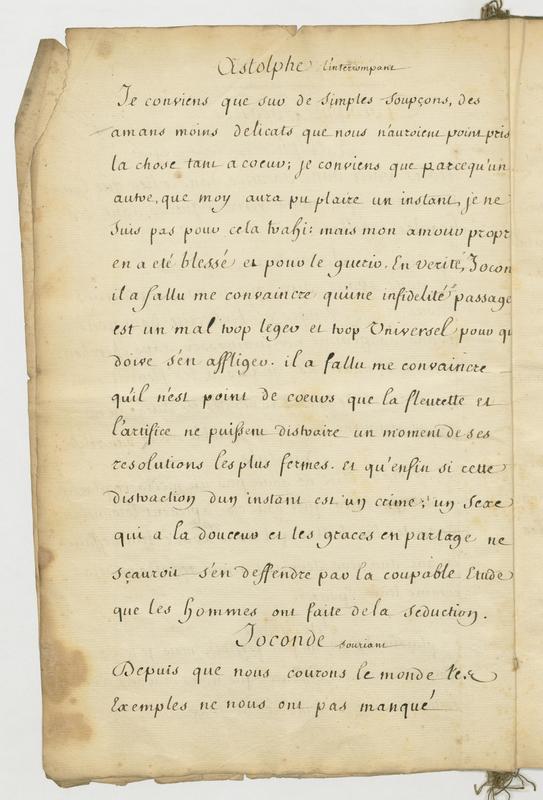 Astolphe l'interrompant
Je conviens que sur de simples soupçons, des
amans moins delicats que nous n'auroient point pris
la chose tant a coeur; je conviens que parcequ'un
autre, que moy aura pu plaire un instant, je ne
suis pas pour cela trahi: mais mon amour propr
en a eté blessé et pour le guerir. En verité, Jocon
il a fallu me convaincre qu'une infidelité passage
est un mal trop leger et trop Universel pour qu
doive s'en affliger. il a fallu me convaincre
qu'il n'est point de coeurs que la fleurette et
l'artifice ne puissent distraire un moment de ses
resolutions les plus fermes. et qu'enfin si cette
distraction dun instant est un crime; un sexe
qui a la douceur et les graces en partage ne
sçauroit s'en deffendre par la coupable Etude
que les hommes ont faite de la seduction.
Joconde souriant
Depuis que nous courons le monde
Exemples ne nous ont pas manqué